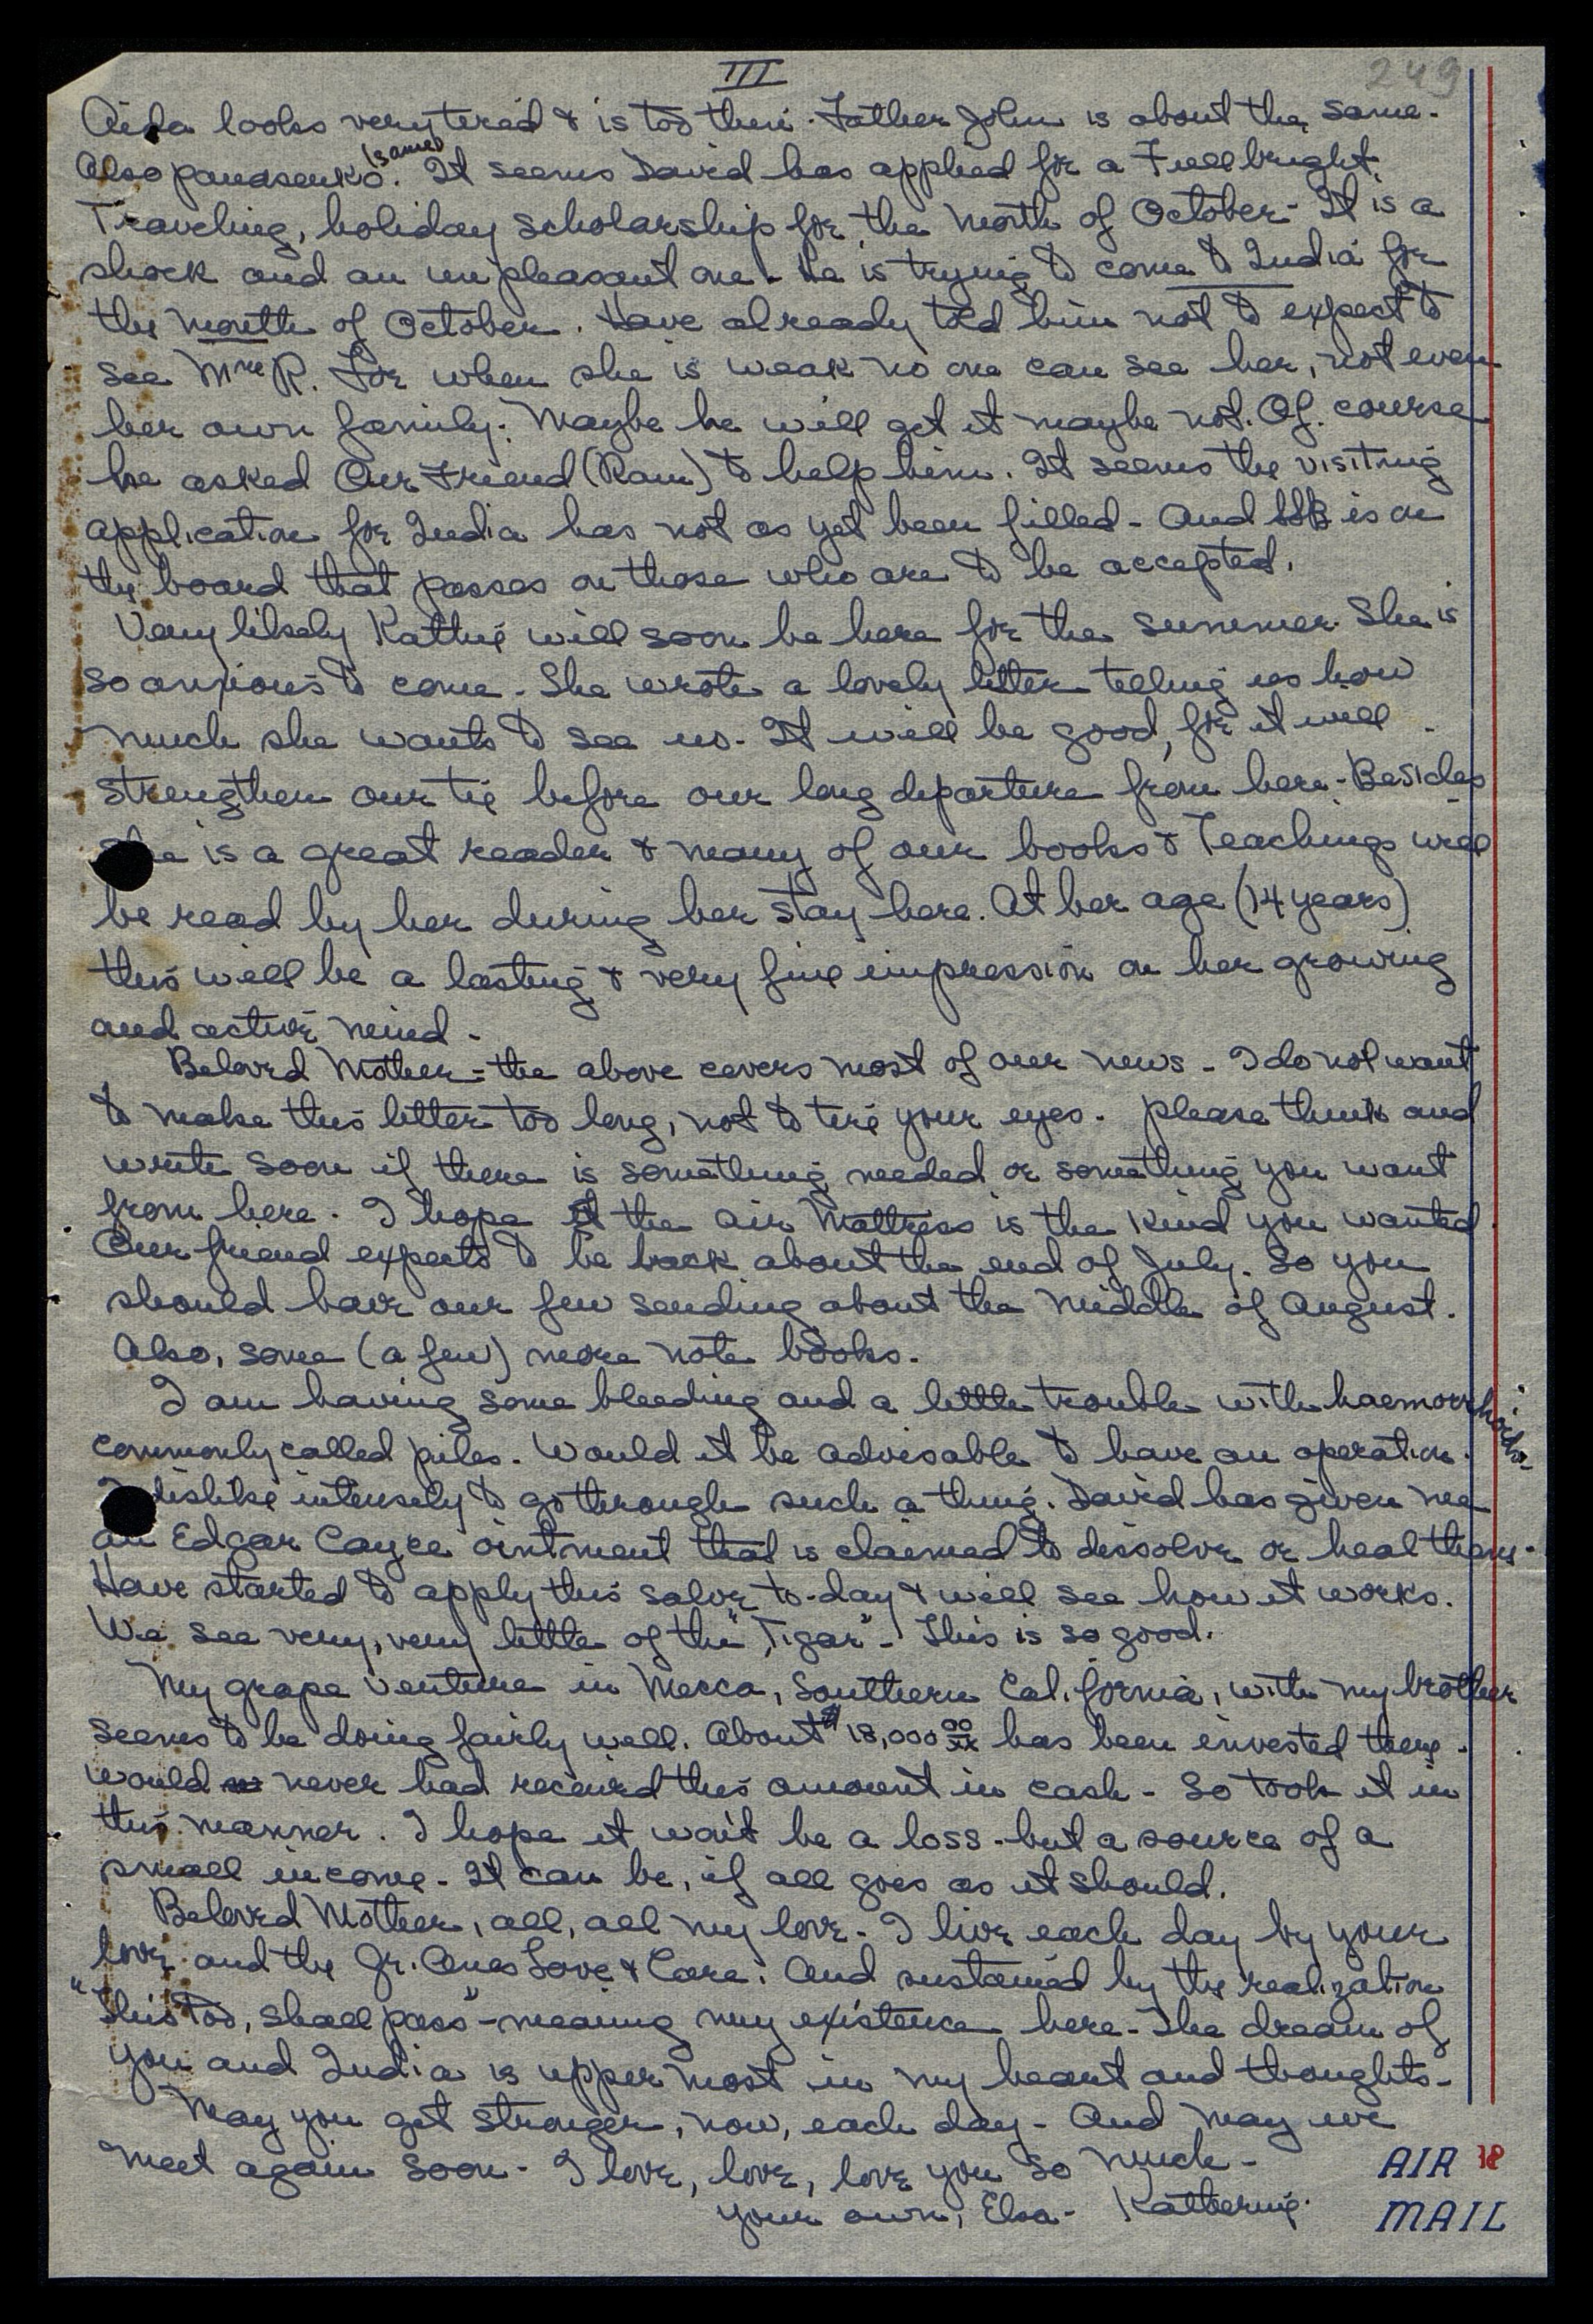 III
249
Aida looks very tired & is too thin. Father John is about the same.
Also Panasenko (same). It seems David has applied for a Fullbright
Traveling, holiday scholarship for the month of October - It is a
shock and an unpleasant one - He is trying to come to India for
the month of October. Have already told him not to expect to
see Mme R. For when she is weak no one can see her, not even
her own family. Maybe he will get it maybe not. Of course
he asked Our Friend (Ram) to help him. It seems the visiting
application for India has not as yet been filled - And is on
the board that passes on those who are to be accepted.
Very likely Kathie will soon be here for the summer. She is
so anxious to come - She wrote a lovely letter telling us how
much she wants to see us. It will be good, for it will
strengthen our tie before our long departure from here - Besides
She is a great reader & many of our books & Teachings will
be read by her during her stay here. At her age (14 years)
this will be a lasting & very fine impression on her growing
and active mind -
Beloved Mother - the above covers most of our news - I do not want
to make this letter too long, not to tire your eyes. Please think and
write soon if there is something needed or something you want
from here. I hope the air Mattress is the kind you wanted.
Our friend expects to be back about the end of July. So you
should have our few sending about the middle of August.
Also, some (a few) more note books.
I am having some bleeding and a little trouble with haemorrhoids -
commonly called piles. Would it be advisable to have an operation.
I dislike intensely to go through such a thing. David has given me
an Edgar Cayce ointment that is claimed to dissolve or heal them -
Have started to apply this salve to-day & will see how it works.
We see very, very little of the "Tigar" - This is so good.
My grape venture in Mecca, Southern California, with my brother
seems to be doing fairly well. About $18,000 00/xx has been invested there.
Would never had received this amount in cash - So took it in
this manner. I hope it won't be a loss - but a source of a
small income - It can be, if all goes as it should.
Beloved Mother, all, all my love - I live each day by your
love and the Gr. Ones Love & Care. And sustained by the realization
"This too, shall pass" - meaning my existence here - The dream of
you and India is upper most in my heart and thoughts -
May you get stronger, now, each day - And may we
meet again soon - I love, love, love you so much -
your own, Elsa - Katherine.
AIR 18
MAIL